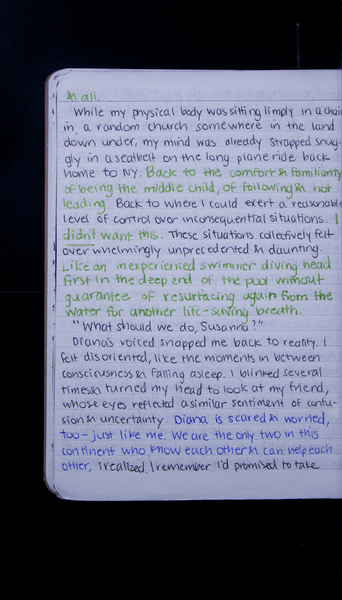 & all.
While my physical body was sitting limply in a chair
in a random church somewhere in the land
down under, my mind was already strapped snug-
gly in a seatbelt on the long plane ride back
home to NY. Back to the comfort & familiarity
of being the middle child, of following & not
leading. Back to where I could exert a reasonable
level of control over inconsequential situations. I
didn't want this. These situations collectively felt
overwhelmingly unprecedented & daunting.
Like an inexperienced swimmer diving head
first in the deep end of the pool without
guarantee of resurfacing again from the
water for another life-saving breath.
"What should we do, Susanna?"
Diana's voiced snapped me back to reality. I
felt disoriented, like the moments in between
consciousness & falling asleep. I blinked several
times & turned my head to look at my friend,
whose eyes reflected a similar sentiment of confu-
sion & uncertainty. Diana is scared & worried,
too- just like me. We are the only two in this
continent who know each other & can help each
other, I realized. I remember I'd promised to take